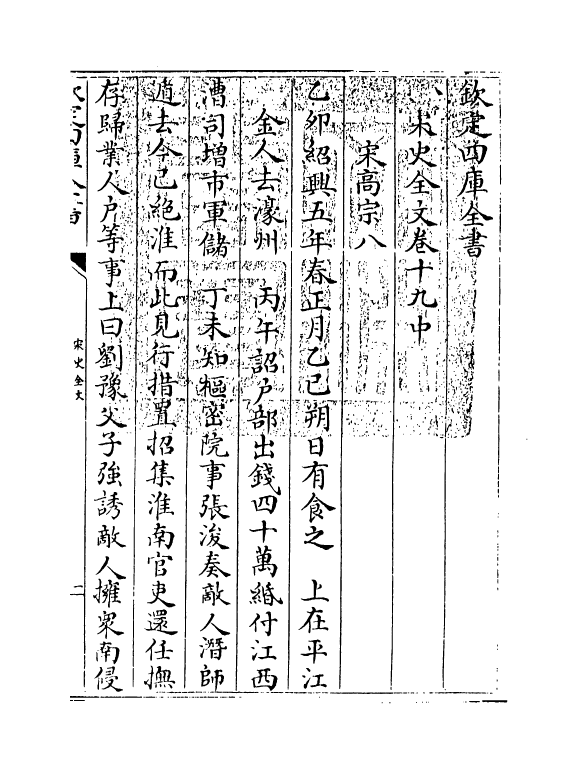 欽定四庫全書
宋史全文卷十九中
宋高宗八
乙卯紹興五年春正月乙巳朔日有食之　上在平江
金人去濠州　丙午詔戸部出錢四十萬緡付江西
漕司增市軍儲　丁未知樞密院事張浚奏敵人潛師
遁去今已絶淮而北見行措置招集淮南官吏還任撫
存歸業人戸等事上曰劉豫父子強誘敵人擁衆南侵
宋史全文